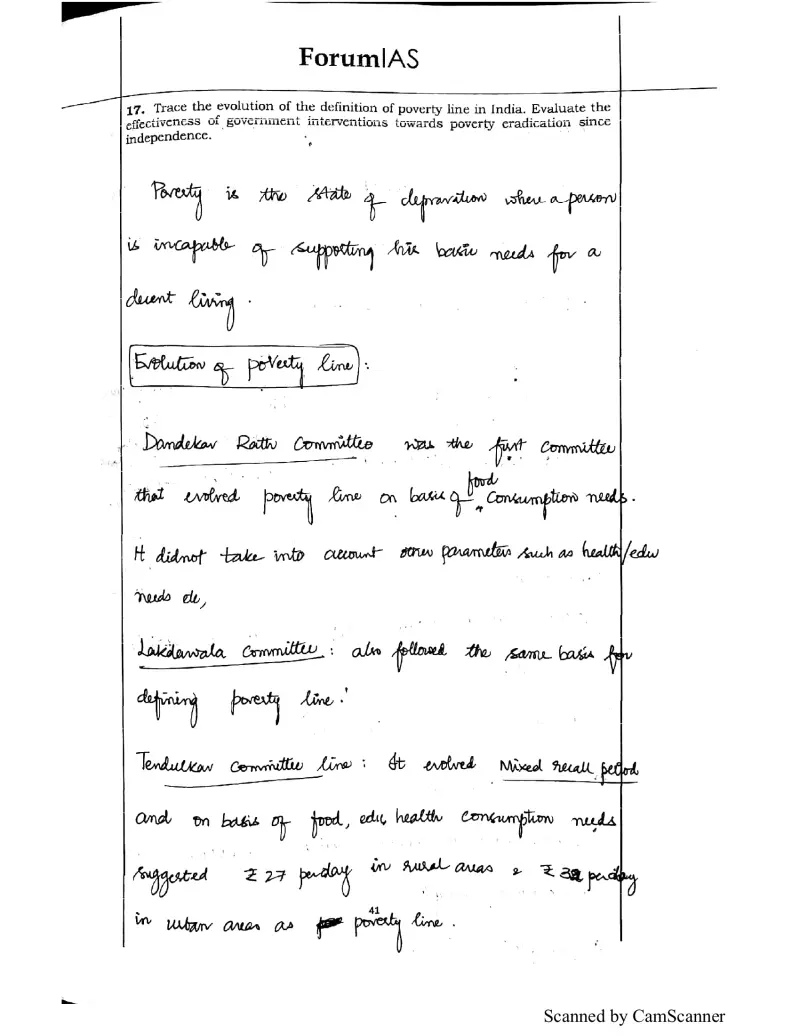 ForumIAS
17. Trace the evolution of the definition of poverty line in India. Evaluate the
effectiveness of government interventions towards poverty eradication since
independence.
Poverty is the state of depravation where a person
is incapable of supporting his basic needs for a
decent living.
Evolution of poverty line :
Dandekar Rath Committee was the first committee
that evolved poverty line on basis of food consumption needs.
It didnot take into account other parameters such as health/edu
needs etc,
Lakdawala Committee : also followed the same basis for
defining poverty line.
Tendulkar committee line : It evolved Mixed recall period
and on basis of food, edu, health consumption needs
suggested ₹ 27 perday in rural areas & ₹ perday
in urban areas as poverty line.
41
Scanned by CamScanner